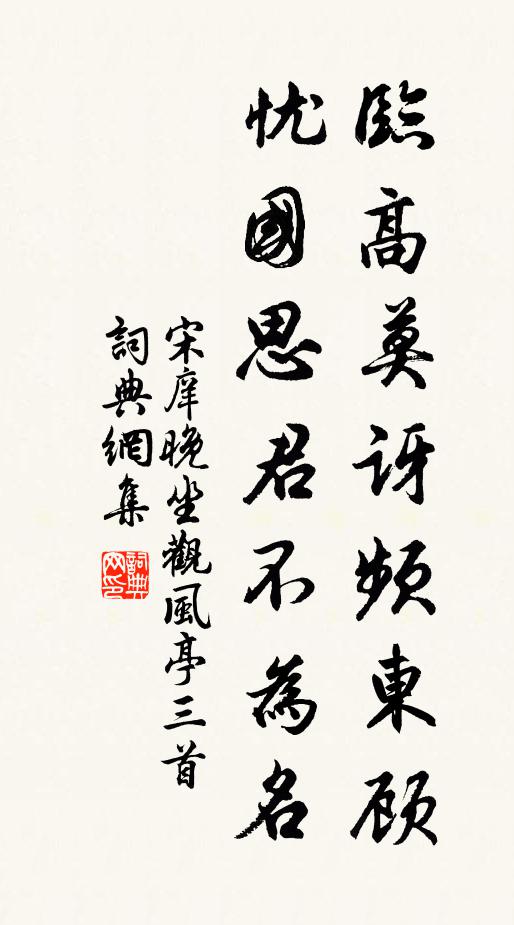 臨高莫訝频東顾
忧國思君不為名
宋庠晚坐觀風亭三首
詞典網集
詞典网印